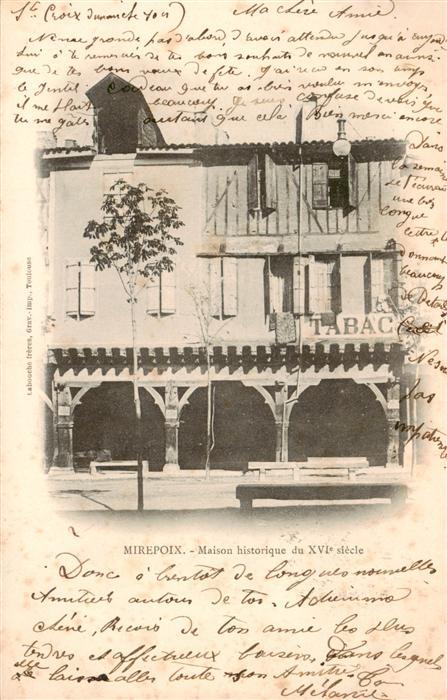 Ste Croix dimanche soir
Ma chère Amie
Ne me gronde pas d'abord d'avoir attendu jusqu'à aujourd'
hui à te remercier de tes bons souhaits de nouvel an ainsi
que de tes bons vœux de fête. J'ai reçu en son temps
le gentil que tu as bien voulu m'envoyer
il me plait beaucoup. Je suis confuse de voir que
tu me gâtes autant que cela. Bien merci encore
Dans
la semaine
je t'écrirai
une très
longue
lettre te
donnant
beaucoup
de détails
Ne sois
pas
impatiente
Labouche frères, Grav.-Imp., Toulouse
TABAC
MIREPOIX. - Maison historique du XVIe siècle
Donc à bientôt de longues nouvelles
Amitiés autour de toi.
chérie, Reçois de ton amie les plus
tendres et affectueux baisers, dans lesquels
elle laisse aller toute son Amitié